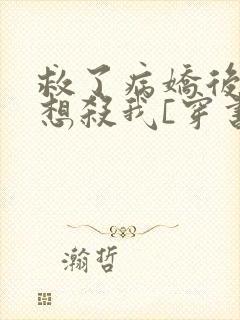 救了病嬌後
想殺我[穿書
瀚哲